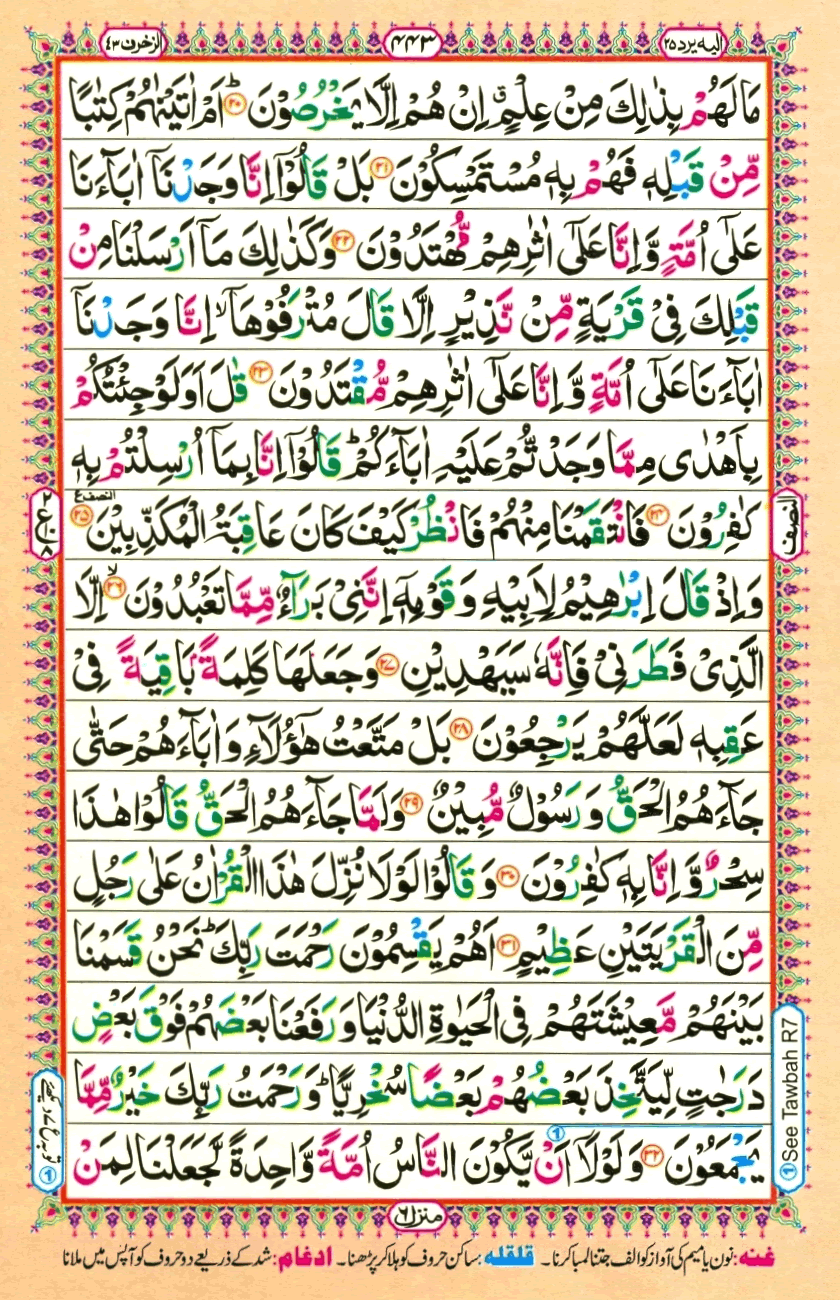 الیہ یرد ٢٥
٤٤٣
الزخرف ٤٣
مَا لَهُمْ بِذٰلِكَ مِنْ عِلْمٍ ۗ اِنْ هُمْ اِلَّا يَخْرُصُوْنَ ؕ۝۲۰ اَمْ اٰتَيْنٰهُمْ كِتٰبًا
مِّنْ قَبْلِهٖ فَهُمْ بِهٖ مُسْتَمْسِكُوْنَ ۝۲۱ بَلْ قَالُوْۤا اِنَّا وَجَدْنَاۤ اٰبَآءَنَا
عَلٰۤى اُمَّةٍ وَّاِنَّا عَلٰۤى اٰثٰرِهِمْ مُّهْتَدُوْنَ ۝۲۲ وَكَذٰلِكَ مَاۤ اَرْسَلْنَا مِنْ
قَبْلِكَ فِيْ قَرْيَةٍ مِّنْ نَّذِيْرٍ اِلَّا قَالَ مُتْرَفُوْهَاۤ ۙ اِنَّا وَجَدْنَاۤ
اٰبَآءَنَا عَلٰۤى اُمَّةٍ وَّاِنَّا عَلٰۤى اٰثٰرِهِمْ مُّقْتَدُوْنَ ۝۲۳ قٰلَ اَوَلَوْ جِئْتُكُمْ
بِاَهْدٰى مِمَّا وَجَدْتُّمْ عَلَيْهِ اٰبَآءَكُمْ ؕ قَالُوْۤا اِنَّا بِمَاۤ اُرْسِلْتُمْ بِهٖ
كٰفِرُوْنَ ۝۲۴ فَانْتَقَمْنَا مِنْهُمْ فَانْظُرْ كَيْفَ كَانَ عَاقِبَةُ الْمُكَذِّبِيْنَ ۝۲۵
النصف
وَاِذْ قَالَ اِبْرٰهِيْمُ لِاَبِيْهِ وَقَوْمِهٖۤ اِنَّنِيْ بَرَآءٌ مِّمَّا تَعْبُدُوْنَ ۙ۝۲۶ اِلَّا
الَّذِيْ فَطَرَنِيْ فَاِنَّهٗ سَيَهْدِيْنِ ۝۲۷ وَجَعَلَهَا كَلِمَةًۢ بَاقِيَةً فِيْ
عَقِبِهٖ لَعَلَّهُمْ يَرْجِعُوْنَ ۝۲۸ بَلْ مَتَّعْتُ هٰۤؤُلَآءِ وَاٰبَآءَهُمْ حَتّٰى
جَآءَهُمُ الْحَقُّ وَرَسُوْلٌ مُّبِيْنٌ ۝۲۹ وَلَمَّا جَآءَهُمُ الْحَقُّ قَالُوْا هٰذَا
سِحْرٌ وَّاِنَّا بِهٖ كٰفِرُوْنَ ۝۳۰ وَقَالُوْا لَوْلَا نُزِّلَ هٰذَا الْقُرْاٰنُ عَلٰى رَجُلٍ
مِّنَ الْقَرْيَتَيْنِ عَظِيْمٍ ۝۳۱ اَهُمْ يَقْسِمُوْنَ رَحْمَتَ رَبِّكَ ؕ نَحْنُ قَسَمْنَا
بَيْنَهُمْ مَّعِيْشَتَهُمْ فِي الْحَيٰوةِ الدُّنْيَا وَرَفَعْنَا بَعْضَهُمْ فَوْقَ بَعْضٍ
دَرَجٰتٍ لِّيَتَّخِذَ بَعْضُهُمْ بَعْضًا سُخْرِيًّا ؕ وَرَحْمَتُ رَبِّكَ خَيْرٌ مِّمَّا
يَجْمَعُوْنَ ۝۳۲ وَلَوْلَاۤ ① اَنْ يَّكُوْنَ النَّاسُ اُمَّةً وَّاحِدَةً لَّجَعَلْنَا لِمَنْ
① See Tawbah R7
منزل ٦
غنہ: نون یا میم کی آواز کو الف جتنا لمبا کرنا۔ قلقلہ: ساکن حروف کو ہلا کر پڑھنا۔ ادغام: شد کے ذریعے دو حروف کو آپس میں ملانا